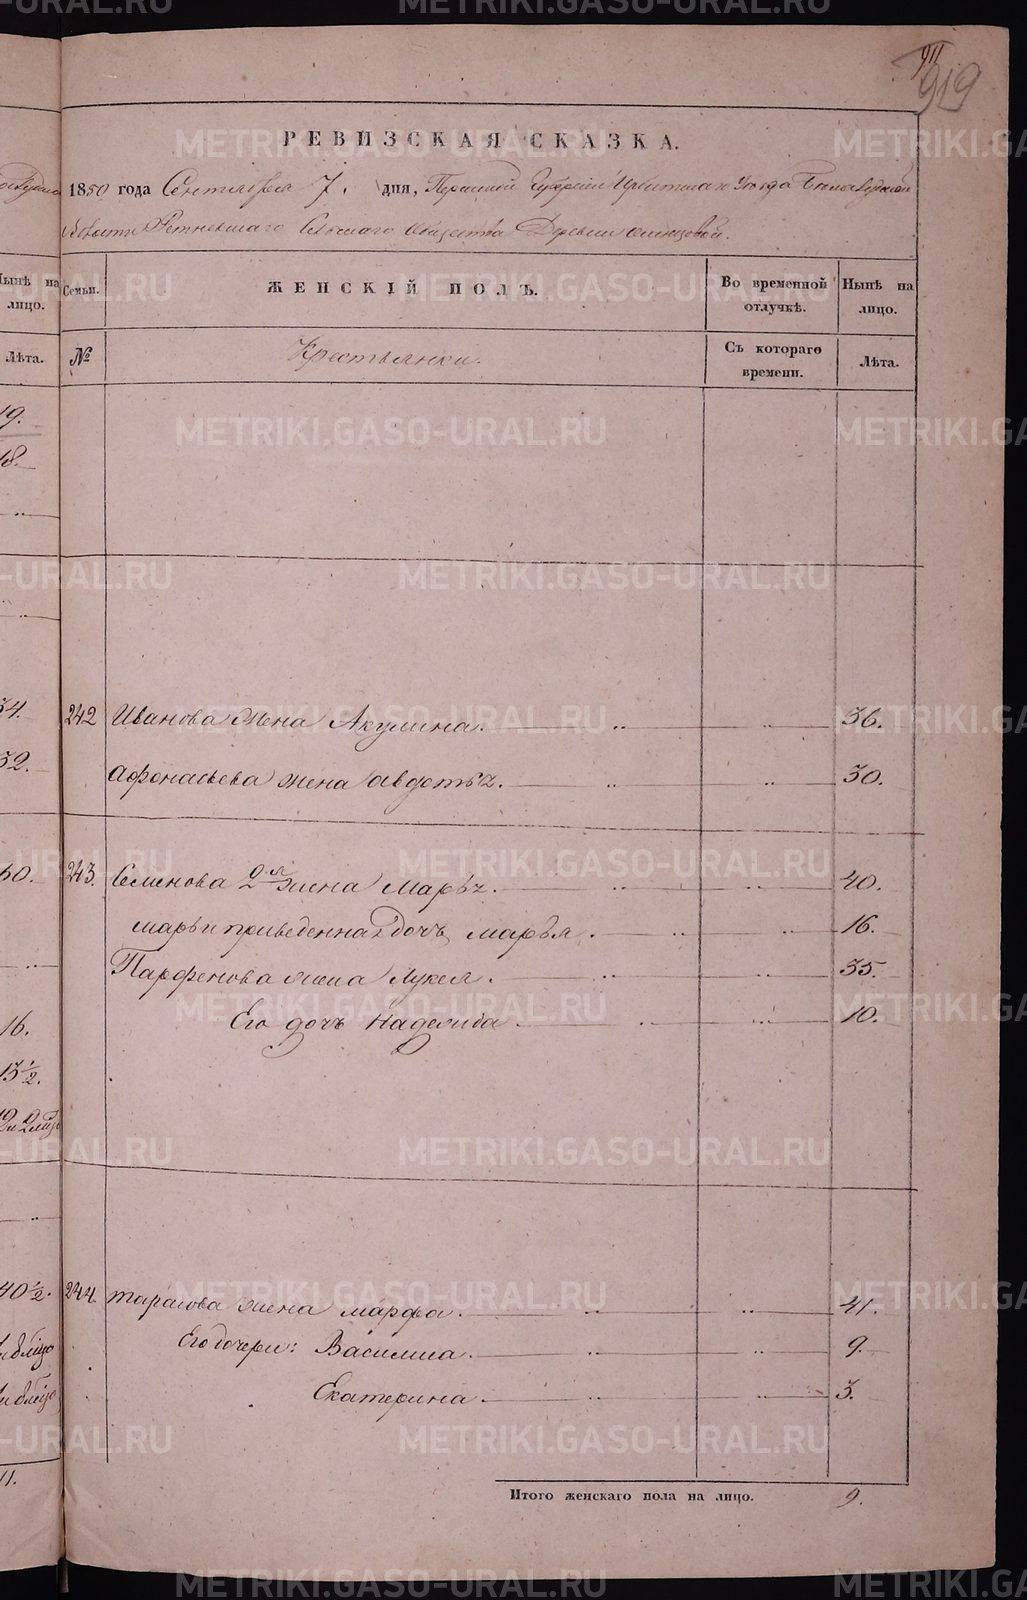 911
919
РЕВИЗСКАЯ СКАЗКА.
1850 года Сентября 7. дня, Пермской Губернии Ирбитскаго Уѣзда
волости Сельскаго Общества Деревни
Нынѣ на лицо.
Семьи.
ЖЕНСКІЙ ПОЛЪ.
Во временной отлучкѣ.
Нынѣ на лицо.
Лѣта.
№
Крестьянки.
Съ котораго времени.
Лѣта.
19.
18.
34. 242 Иванова жена Акулина. 36.
32. Афонасьева жена Авдотья. 30.
50. 243. Семенова 2я жена Марья. 40.
Марьи приведенная дочь Марья. 16.
Парфенова жена Лукея. 35.
16. Его дочь Надежда 10.
13½.
40½. 244. Тарасова жена Марфа. 41.
Его дочери: Василиса. 9.
Екатерина 3.
11.
Итого женскаго пола на лицо. 9.
METRIKI.GASO-URAL.RU